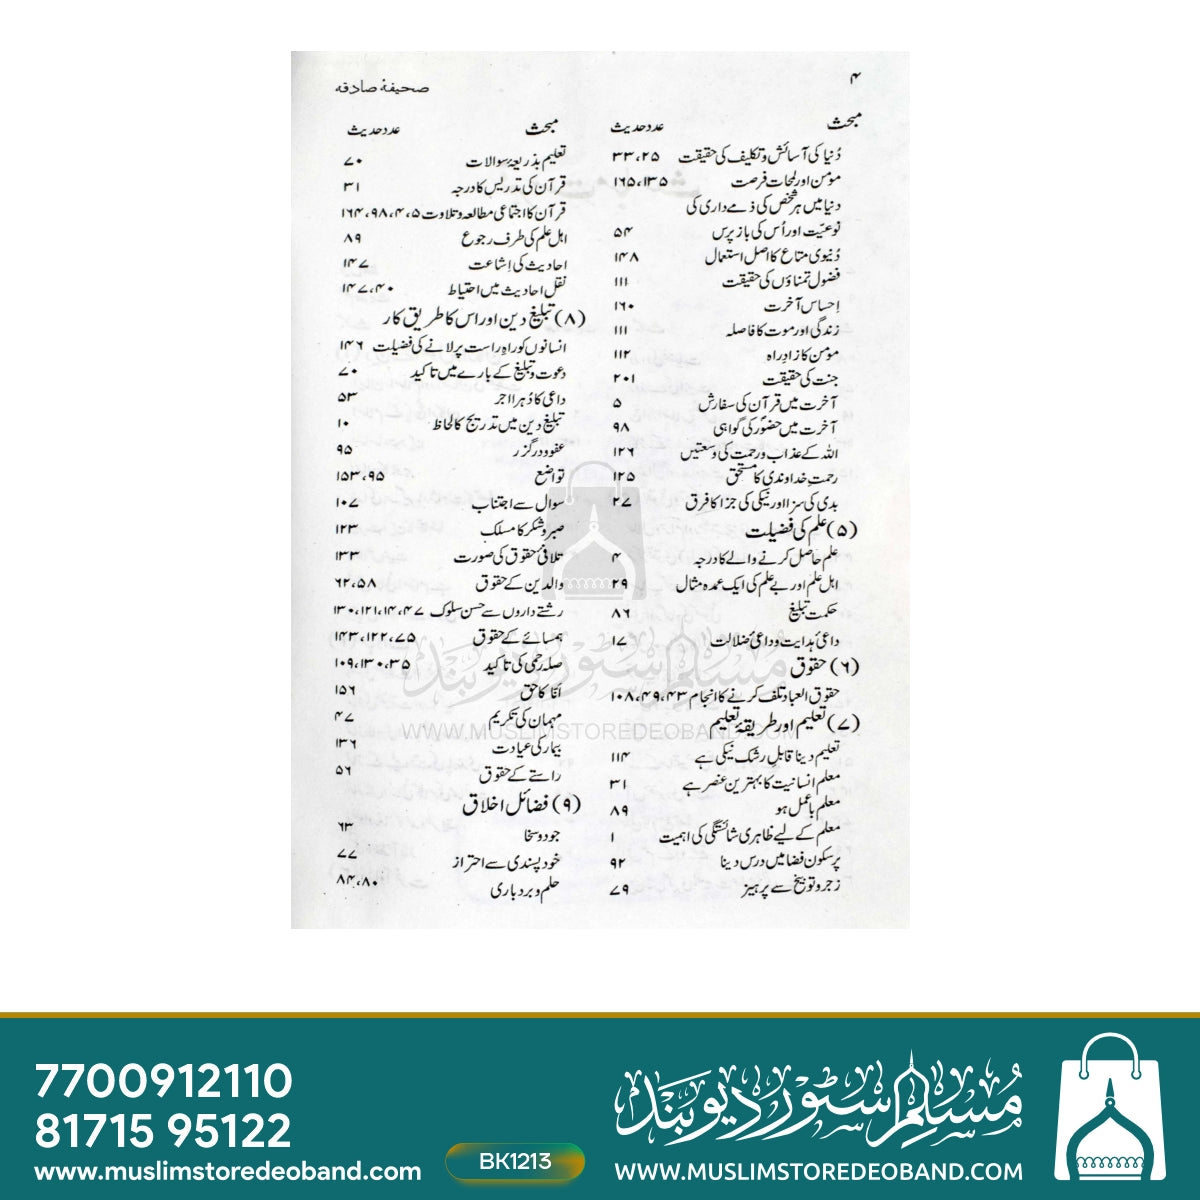 ۴
صحیفۂ صادقہ
مبحث عدد حدیث
دُنیا کی آسائش و تکلیف کی حقیقت ۳۳،۲۵
مومن اور لمحات فرصت ۱۶۵،۱۳۵
دنیا میں ہر شخص کی ذمے داری کی
نوعیّت اور اُس کی باز پرس ۵۴
دُنیوی متاع کا اصل استعمال ۱۴۸
فضول تمناؤں کی حقیقت ۱۱۱
اِحساسِ آخرت ۱۶۰
زندگی اور موت کا فاصلہ ۱۱۱
مومن کا زادِ راہ ۱۱۲
جنت کی حقیقت ۲۰۱
آخرت میں قرآن کی سفارش ۵
آخرت میں حضورؐ کی گواہی ۹۸
اللہ کے عذاب و رحمت کی وسعتیں ۱۲۶
رحمتِ خداوندی کا مستحق ۱۲۵
بدی کی سزا اور نیکی کی جزا کا فرق ۲۷
(۵) علم کی فضیلت
علم حاصل کرنے والے کا درجہ ۴
اہل علم اور بے علم کی ایک عمدہ مثال ۲۹
حکمت تبلیغ ۸۶
داعئ ہدایت و داعئ ضلالت ۱۷
(۶) حقوق
حقوق العباد تلف کرنے کا انجام ۱۰۸،۴۹،۴۳
(۷) تعلیم اور طریقۂ تعلیم
تعلیم دینا قابلِ رشک نیکی ہے ۱۱۴
معلم انسانیت کا بہترین عنصر ہے ۳۱
معلم با عمل ہو ۸۹
معلم کے لیے ظاہری شائستگی کی اہمیت ۱
پر سکون فضا میں درس دینا ۹۲
زجر و توبیخ سے پرہیز ۷۹
مبحث عدد حدیث
تعلیم بذریعہ سوالات ۷۰
قرآن کی تدریس کا درجہ ۳۱
قرآن کا اجتماعی مطالعہ و تلاوت ۱۶۴،۹۸،۴،۵
اہل علم کی طرف رجوع ۸۹
احادیث کی اِشاعت ۱۴۷
نقلِ احادیث میں احتیاط ۱۴۷،۴۰
(۸) تبلیغ دین اور اس کا طریق کار
انسانوں کو راہِ راست پر لانے کی فضیلت ۱۴۶
دعوت و تبلیغ کے بارے میں تاکید ۷۰
داعی کا دُہرا اجر ۵۳
تبلیغ دین میں تدریج کا لحاظ ۱۰
عفو و درگزر ۹۵
تواضع ۱۵۳،۹۵
سوال سے اجتناب ۱۰۷
صبر و شکر کا مسلک ۱۲۳
تلافئ حقوق کی صورت ۱۳۳
والدین کے حقوق ۶۲،۵۸
رشتے داروں سے حسن سلوک ۱۳۰،۱۲۱،۱۴،۴۷
ہمسائے کے حقوق ۱۴۳،۱۲۲،۷۵
صلہ رحمی کی تاکید ۱۰۹،۱۳۰،۳۵
اَنّا کا حق ۱۵۶
مہمان کی تکریم ۴۷
بیمار کی عیادت ۱۳۶
راستے کے حقوق ۵۶
(۹) فضائل اخلاق
جود و سخا ۶۳
خود پسندی سے احتراز ۷۷
حلم و بردباری ۸۴،۸۰
مسلم سٹور دیوبند
WWW.MUSLIMSTOREDEOBAND.COM
7700912110
81715 95122
www.muslimstoredeoband.com
BK1213
مُسلم سٹور دیوبند
WWW.MUSLIMSTOREDEOBAND.COM